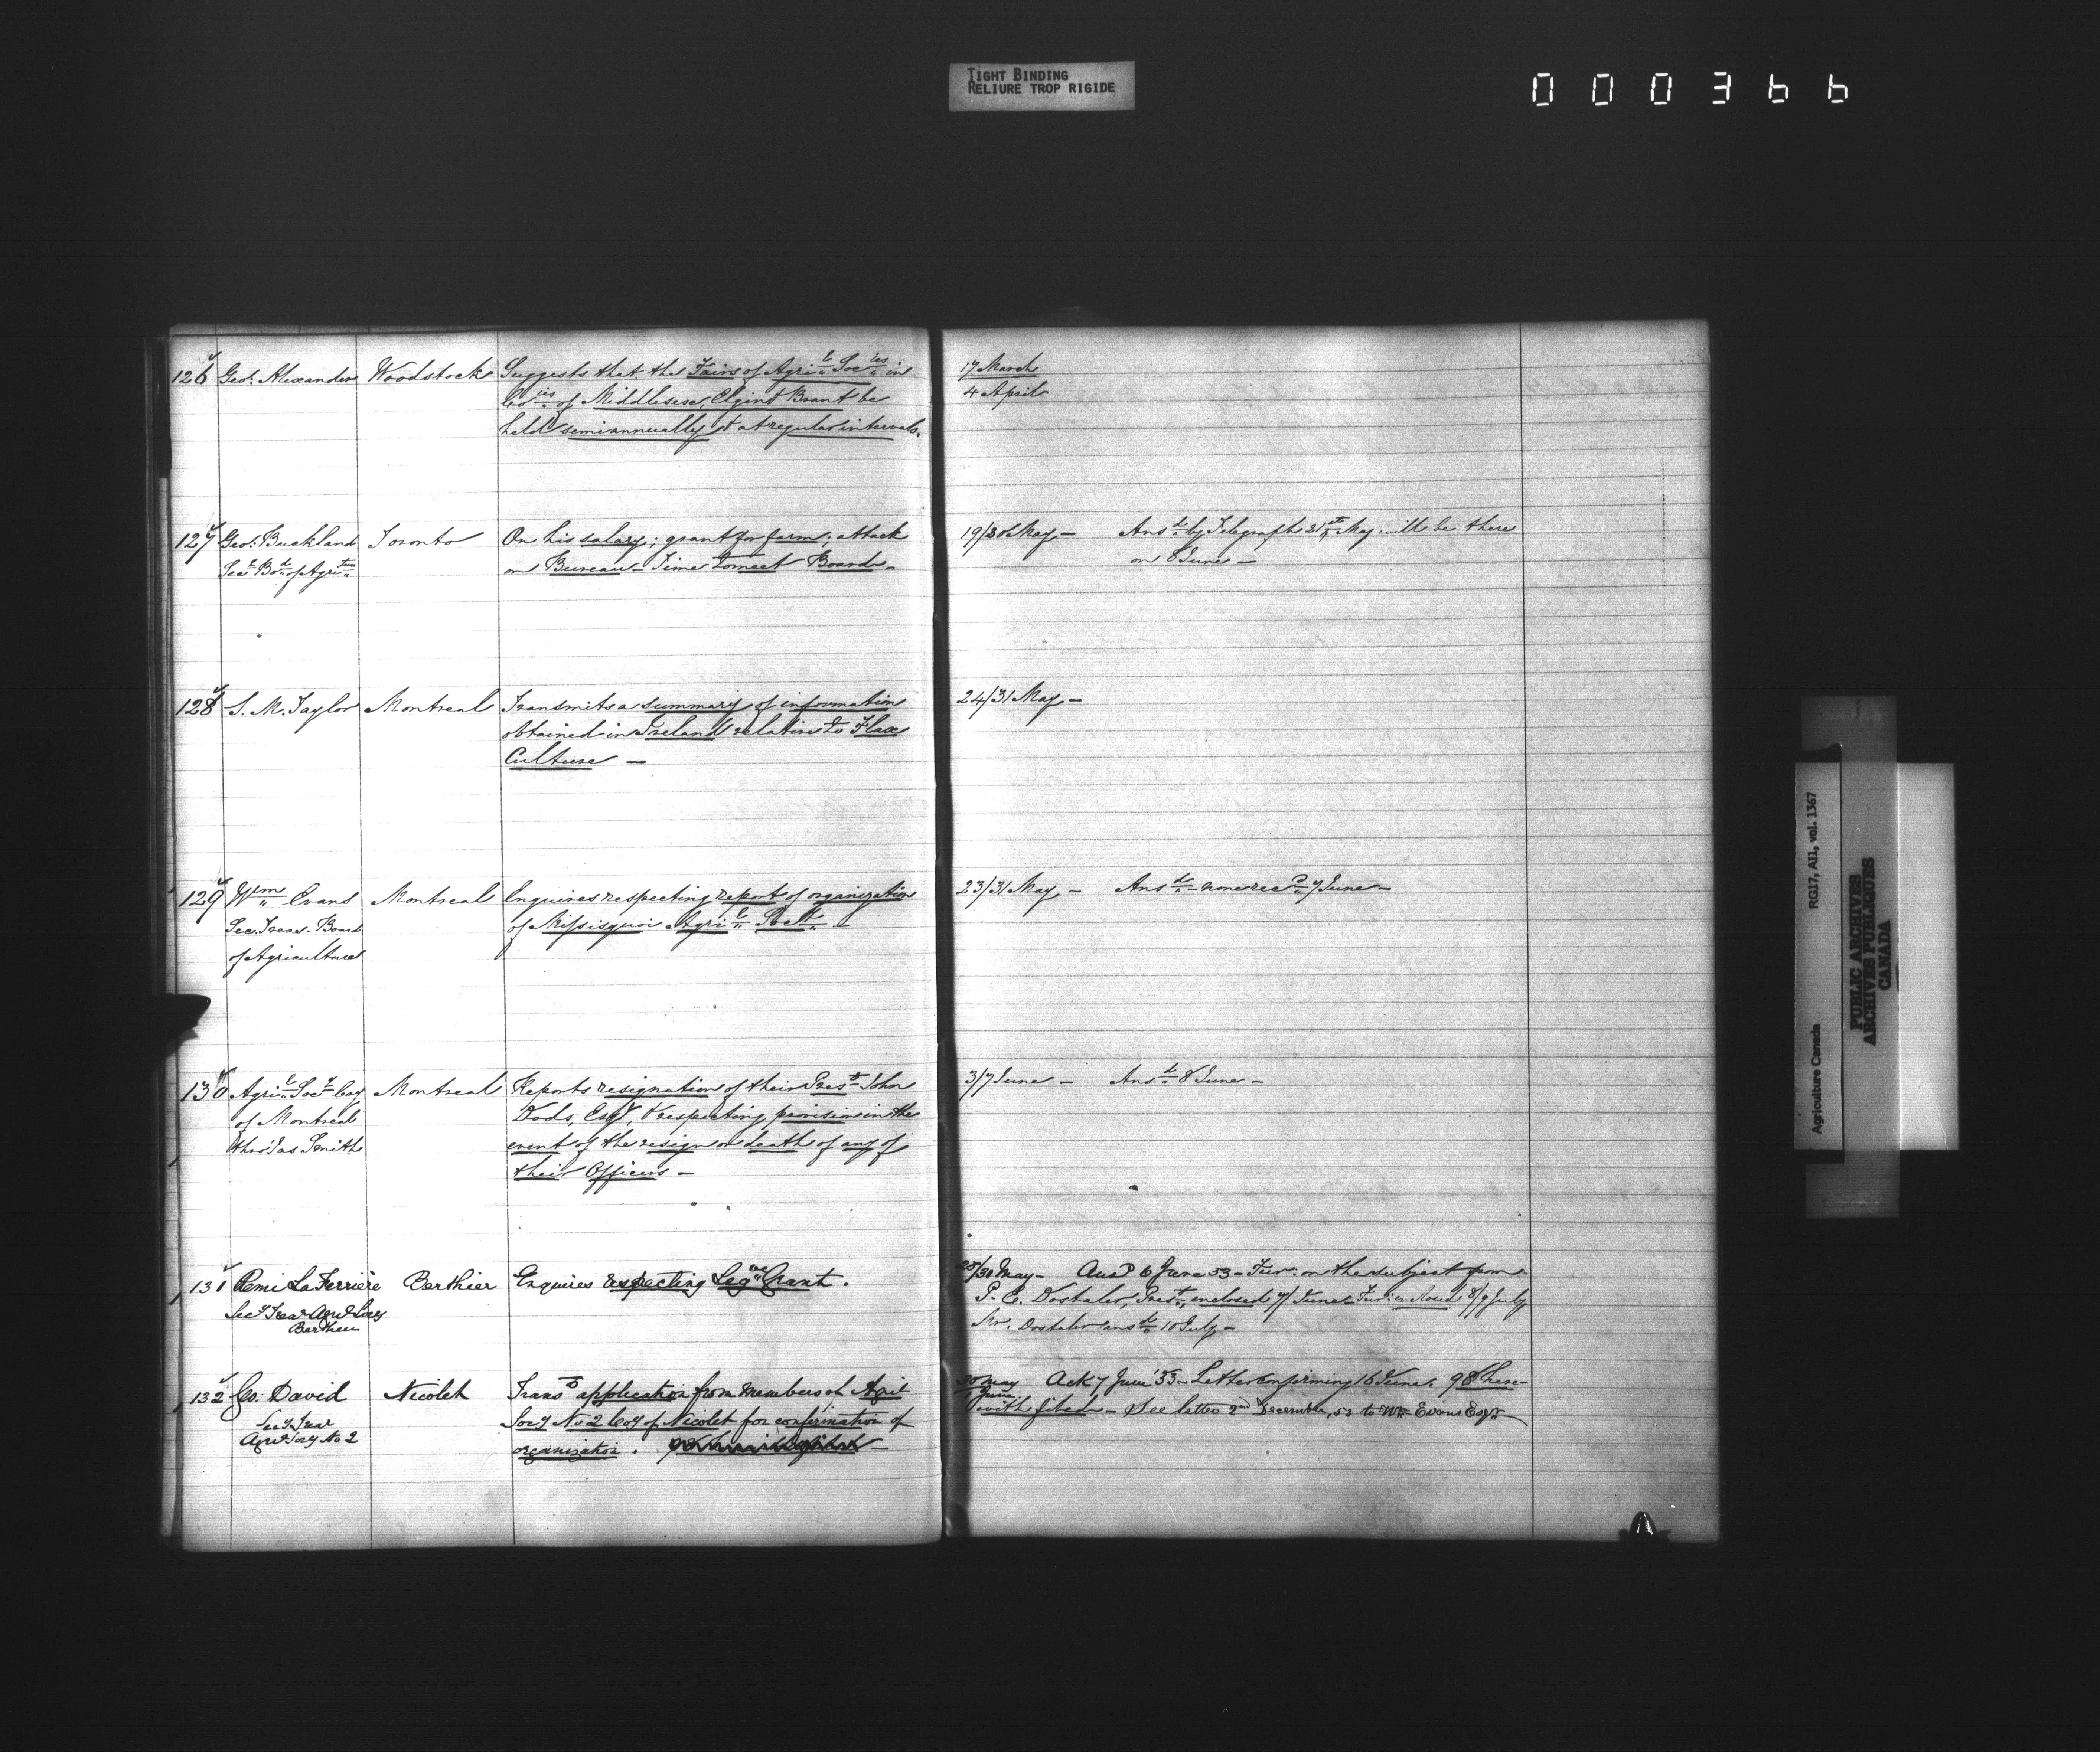 TIGHT BINDING
RELIURE TROP RIGIDE
000366
126 Geo. Alexander Woodstock Suggests that the Fairs of Agril Socies in
Coies of Middlesex, Elgin & Brant be
held semiannually & at regular intervals.
17 March
4 April
127 Geo. Buckland Toronto On his salary; grant for farm; attack
Secy Bd of Agriture on Bureau - Time to meet Board -
19/30 May - Ansd by Telegraph 31st May will be there
on 8 June -
128 S. M. Taylor Montreal Transmits a summary of information
obtained in Ireland relative to Flax
Culture -
24/31 May -
129 Wm Evans Montreal Enquires respecting report of organization
Sec. Treas. Board of Missisquoi Agril Socty -
of Agriculture
23/31 May - Ansd - none recd 7 June -
130 Agril Socy Coy Montreal Reports resignation of their Prest John
of Montreal Dods, Esqr, & respecting provision in the
thro' Jas Smith event of the resign or death of any of
their Officers -
3/7 June - Ansd 8 June -
131 Remi LaFerrière Berthier Enquires respecting Legve Grant.
Secy Treasr Agrl Socy
Berthier
28/30 May - Ansd 6 June 53 - Fur. on the subject from
P. E. Dostaler, Prest, enclosed 4/ June - Fur. enclosed 8/9 July
Mr. Dostaler ansd 10 July -
132 Go. David Nicolet Transg application from members of Agril
Secy Trear Socy No 2 Coy of Nicolet for confirmation of
Agrl Socy No 2 organization.
30 May Ack 7 June '53 - Letter confirming 16 June. 98 here-
June with filed - See letter 2nd December, 53 to Wm Evans Esqr
Agriculture Canada RG17, AII, vol. 1367
PUBLIC ARCHIVES
ARCHIVES PUBLIQUES
CANADA